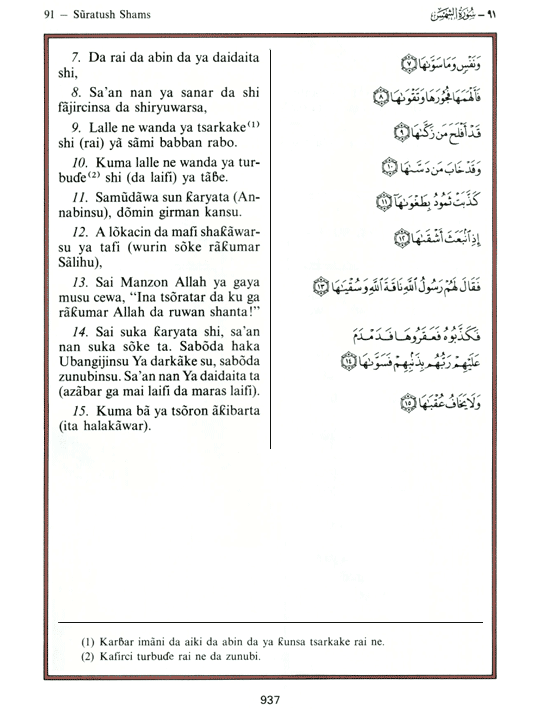 91 — Sũratush Shams
٩١ - سُورَةُ الشَّمْسِ
7. Da rai da abin da ya daidaita
shi,
8. Sa'an nan ya sanar da shi
fãjircinsa da shiryuwarsa,
9. Lalle ne wanda ya tsarkake(1)
shi (rai) yã sãmi babban rabo.
10. Kuma lalle ne wanda ya tur-
buɗe(2) shi (da laifi) ya tãɓe.
11. Samũdãwa sun ƙaryata (An-
nabinsu), dõmin girman kansu.
12. A lõkacin da mafi shaƙãwar-
su ya tafi (wurin sõke rãƙumar
Sãlihu),
13. Sai Manzon Allah ya gaya
musu cewa, "Ina tsõratar da ku ga
rãƙumar Allah da ruwan shanta!"
14. Sai suka ƙaryata shi, sa'an
nan suka sõke ta. Sabõda haka
Ubangijinsu Ya darkãke su, sabõda
zunubinsu. Sa'an nan Ya daidaita ta
(azãbar ga mai laifi da maras laifi).
15. Kuma bã ya tsõron ãƙibarta
(ita halakãwar).
وَنَفْسٍ وَمَا سَوَّىٰهَا ﴿٧﴾
فَأَلْهَمَهَا فُجُورَهَا وَتَقْوَىٰهَا ﴿٨﴾
قَدْ أَفْلَحَ مَن زَكَّىٰهَا ﴿٩﴾
وَقَدْ خَابَ مَن دَسَّىٰهَا ﴿١٠﴾
كَذَّبَتْ ثَمُودُ بِطَغْوَىٰهَآ ﴿١١﴾
إِذِ ٱنۢبَعَثَ أَشْقَىٰهَا ﴿١٢﴾
فَقَالَ لَهُمْ رَسُولُ ٱللَّهِ نَاقَةَ ٱللَّهِ وَسُقْيَٰهَا ﴿١٣﴾
فَكَذَّبُوهُ فَعَقَرُوهَا فَدَمْدَمَ
عَلَيْهِمْ رَبُّهُم بِذَنۢبِهِمْ فَسَوَّىٰهَا ﴿١٤﴾
وَلَا يَخَافُ عُقْبَٰهَا ﴿١٥﴾
(1) Karɓar imãni da aiki da abin da ya ƙunsa tsarkake rai ne.
(2) Kafirci turbuɗe rai ne da zunubi.
937